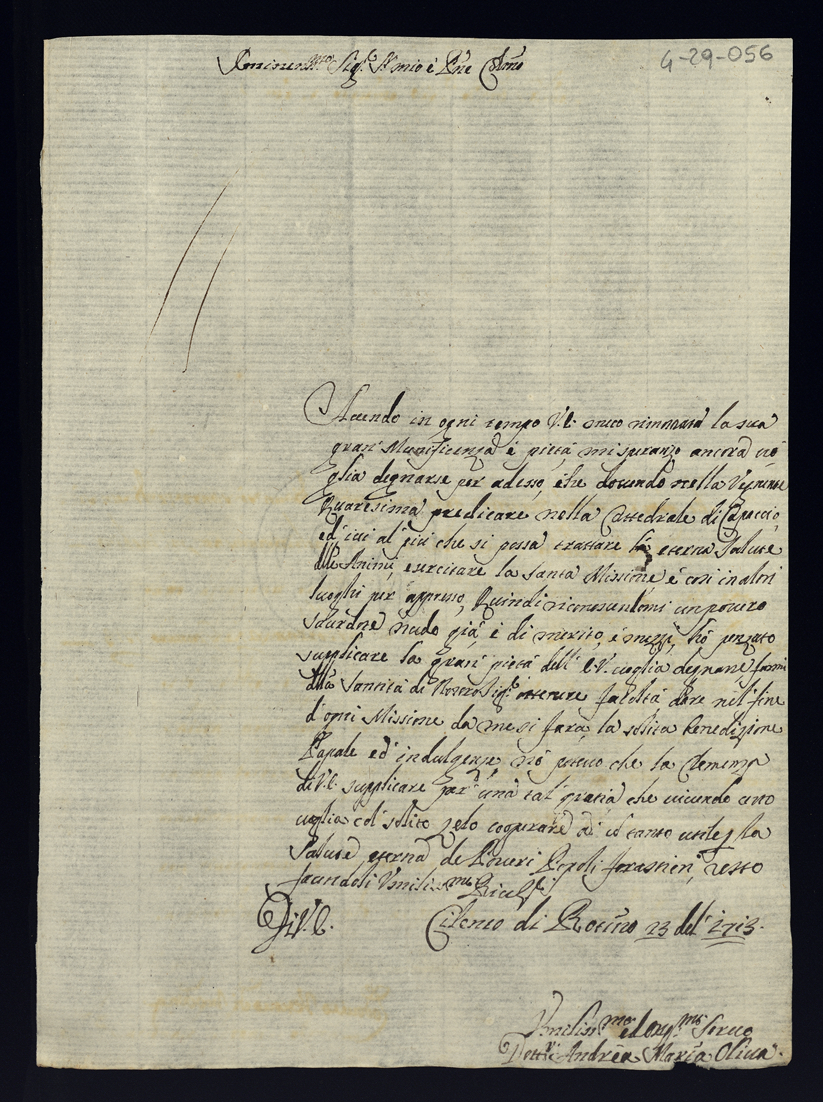 4-29-056
Eminen.mo Sig.r S.r mio è P.ne Col.mo
Avendo in ogni tempo V.E. meco rimostrata la sua
gran' Munificenza è pietà mi speranzo ancora vo
glia degnarse per adesso, che dovendo nella Vegnente
Quaresima predicare nella Cattedrale di Capaccio,
ed' ivi al più che si possa trattare la eterna Salute
dell'Anime, esercitare la Santa Missione, è così in altri
luoghi per appresso, Quindi riconoscendomi un povero
Sacerdote nudo già è di merito, è mezzi, hò penzato
supplicare la gran' pietà dell' E.V. voglia degnarse farmi
dalla Santità di Nostro Sig.re ottenere facoltà dare nel' fine
d'ogni Missione da me si farà, la solita Benedizione
Papale ed' indulgenze, nò potevo che la Clemenza
di V.E. supplicare per' una tal' gratia che vivendo certo
voglia col' solito zelo cooperare ad' il tanto utile p la
Salute eterna de Poveri Popoli forastieri, resto
facendoli Umiliss.me River.ze
Di V.E. Cilento di Rotino 23 del' 1713.
Umiliss.mo ed Oblig.mo Servo
Dott.r Andrea Maria Oliva.